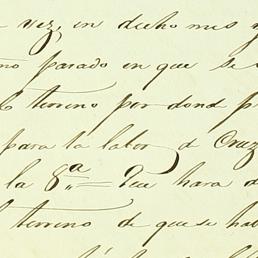 vez, en dicho mes y
no parado en que se
terreno por dond p
para la labor d Cruz
la 8.ª = Que hara d
terreno de que se hab